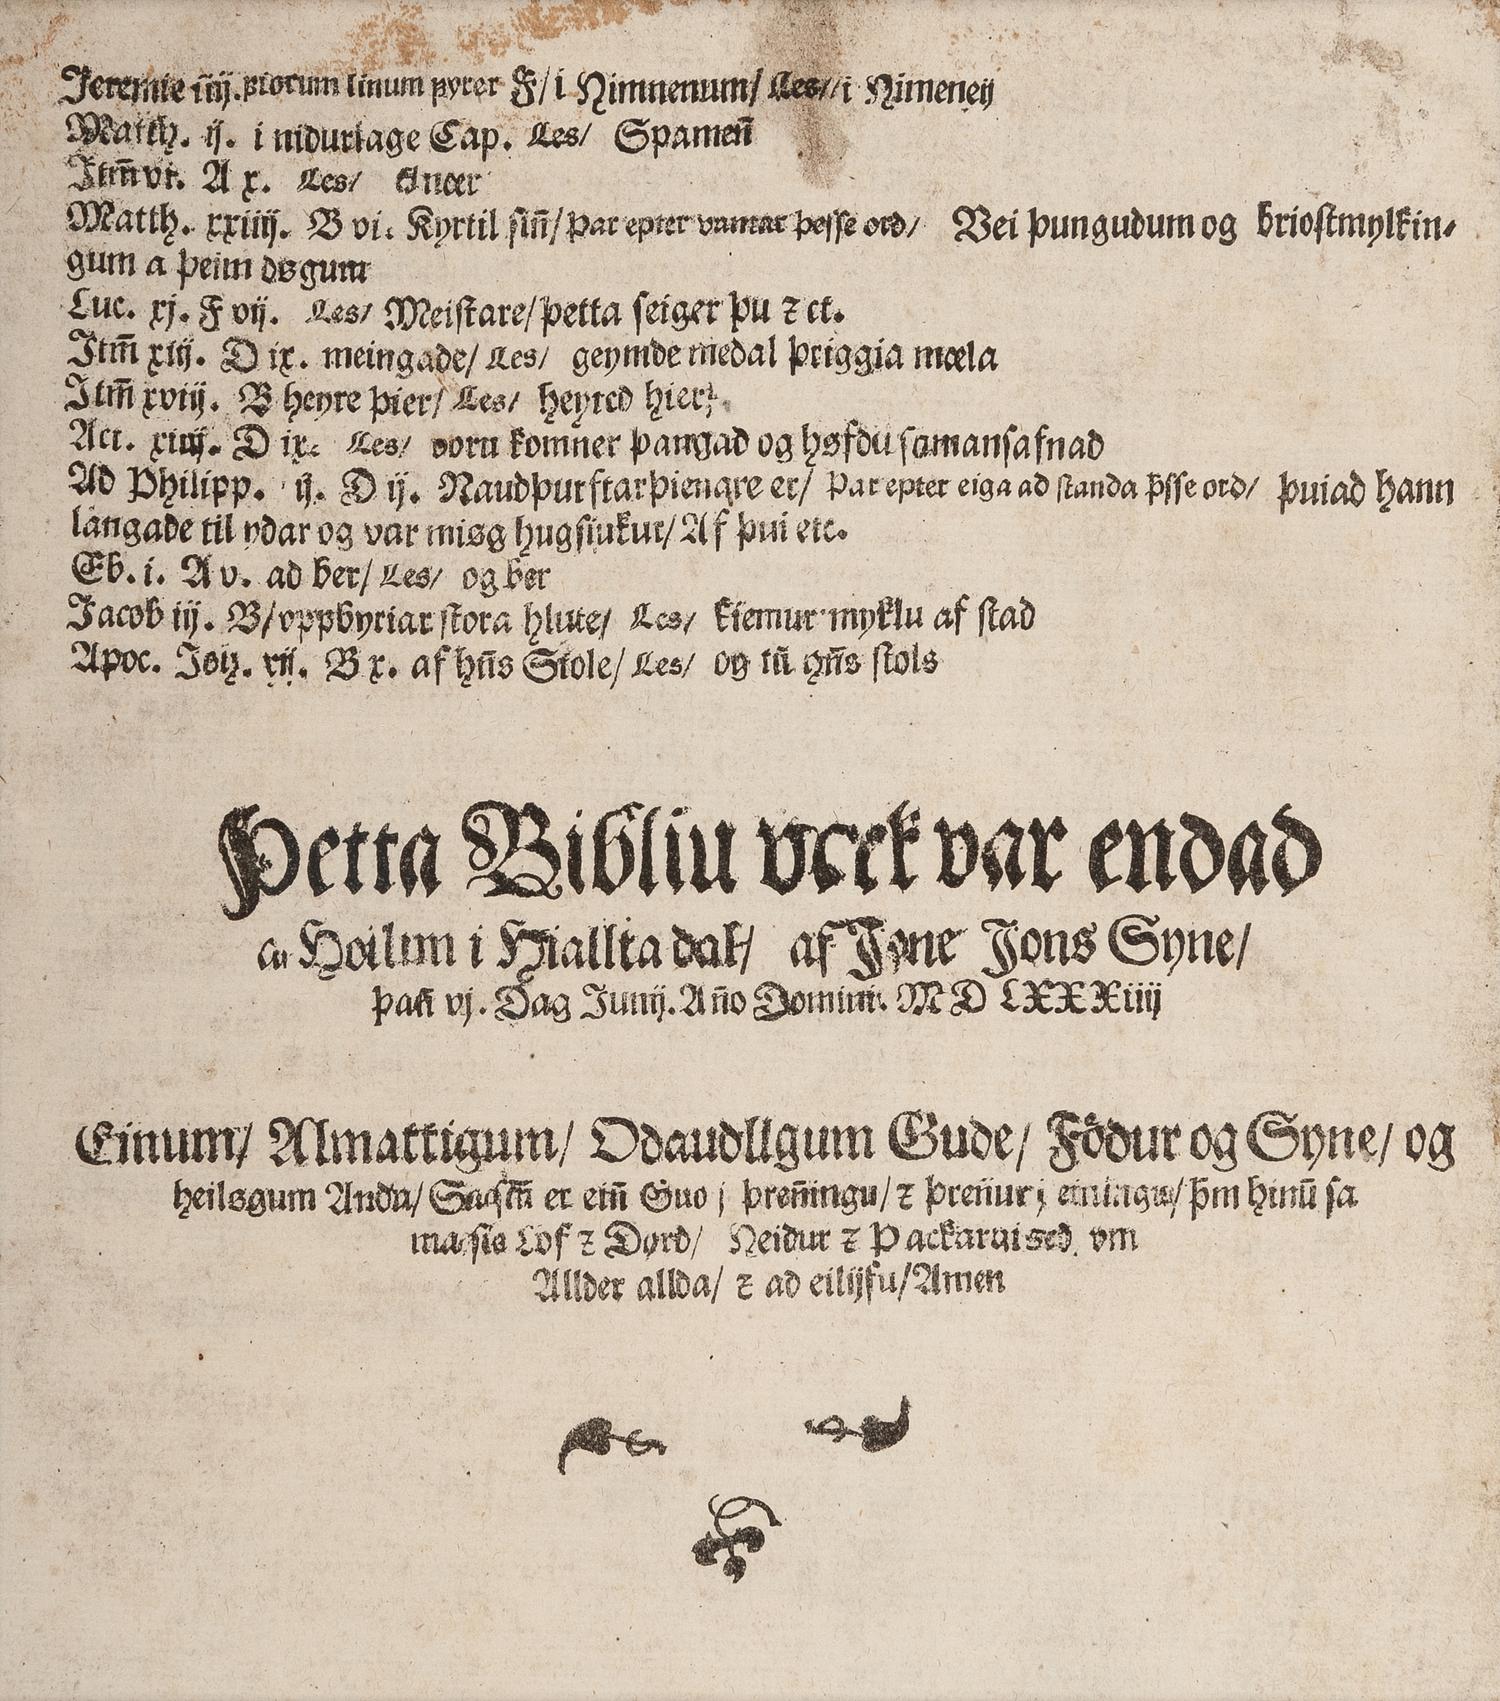 Jeremie iiij. fiorum linum fyrer F/ i Nimnenum/ Les/ i Nimeneij
Matth. ij. i nidurlage Cap. Les/ Spamen̄
Itm̄ vi. A x. Les/
Matth. xxiiij. B vi. Kyrtil sin̄/ Þar epter vantar þesse ord/ Vei þungudum og briostmylkin-
gum a þeim døgum
Luc. xj. F vij. Les/ Meistare/ þetta seiger þu ⁊ ct.
Itm̄ xiij. D ix. meingade/ Les/ geymde medal þriggia mæla
Itm̄ xviij. B heyre þier/ Les/ heyred hier
Act. xiiij. D ix. Les/ voru komner þangad og høfdu samansafnad
Ad Philipp. ij. D ij. Naudþurftar þienare er/ Þar epter eiga ad standa þ̄sse ord/ þuiad hann
langade til ydar og var miøg hugsiukur/ Af þui etc.
Eb. i. A v. ad ber/ Les/ og ber
Jacob iij. B/ vppbyriar stora hlute/ Les/ kiemur myklu af stad
Apoc. Joh. xij. B x. af hn̄s Stole/ Les/ og til hn̄s stols
Þetta Bibliu verk var endad
a Hoilum i Hiallta dal/ af Jone Jons Syne/
þan̄ vj. Dag Junij. An̄o Domini. M D LXXXiiij
Einum/ Almattigum/ Odaudligum Gude/ Födur og Syne/ og
heiløgum Anda/ er ein̄ Gud j þren̄ingu/ ⁊ þren̄ur j einingu/ þm̄ hinū sa
ma sie Lof ⁊ Dyrd/ Heidur ⁊ Þackargiørd vm
Allder allda/ ⁊ ad eilijfu/ Amen